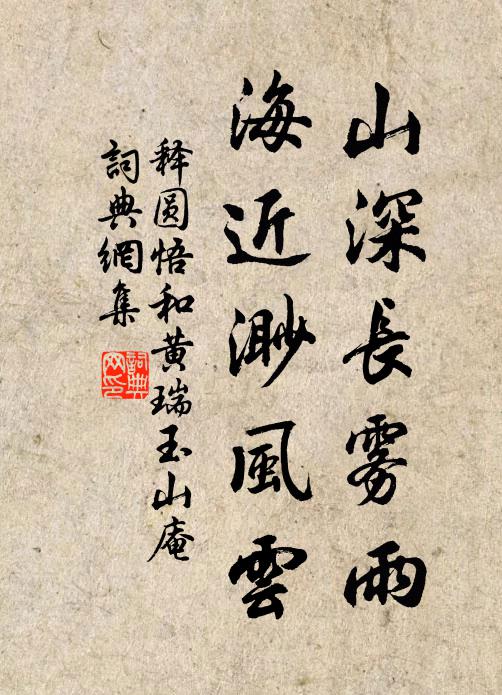 山深長雾雨
海近渺風雲
释圆悟和黄瑞玉山庵
詞典網集
詞典网印